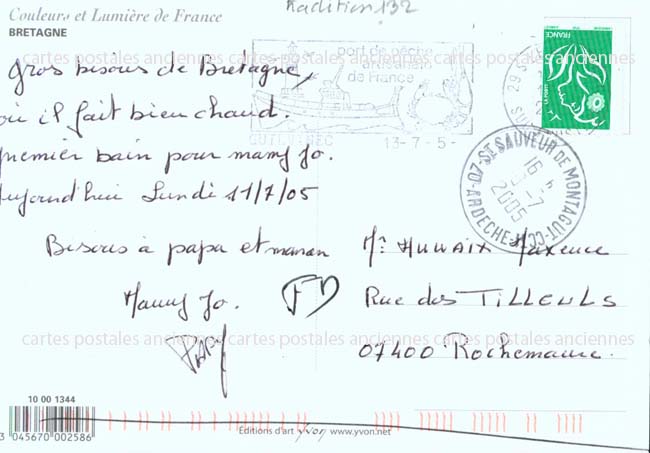 Couleurs et Lumière de France
BRETAGNE
Tradition 132
port de pêche
de France
GUILVINEC
13-7-5-
FRANCE
29
ST SAUVEUR DE MONTAGUT-CC-07-ARDECHE
16 H
-7
2005
Gros bisous de Bretagne,
où il fait bien chaud.
premier bain pour mamy Jo.
Aujourd'hui Lundi 11/7/05
Bisous à papa et maman
Mamy Jo.
PAPY
Mr Maxence
Rue des TILLEULS
07400 Rochemaure.
cartes postales anciennes cartes postales anciennes
cartes postales anciennes cartes postales anciennes
10 00 1344
3 045670 002586
Editions d'art yvon www.yvon.net